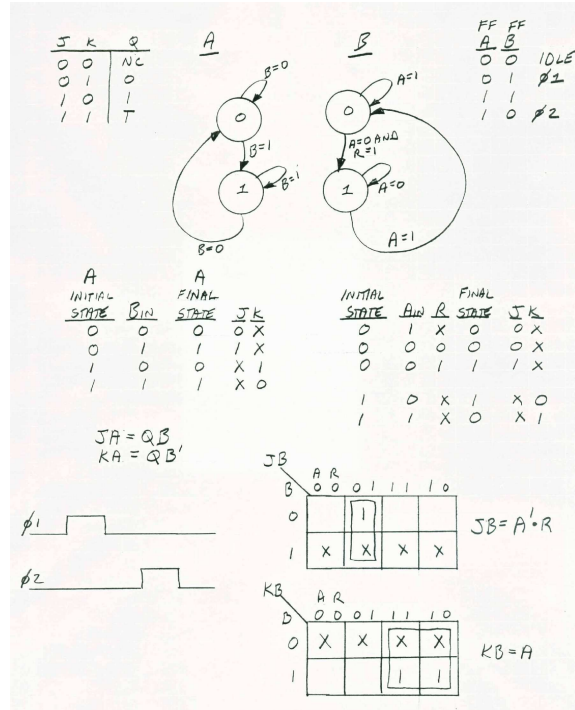 J K Q
0 0 NC
0 1 0
1 0 1
1 1 T
A
B=0
0
B=1
1
B=1
B=0
B
A=1
0
A=0 AND
R=1
1
A=0
A=1
FF FF
A B
0 0 IDLE
0 1 ϕ1
1 1
1 0 ϕ2
A A
INITIAL FINAL
STATE BIN STATE J K
0 0 0 0 X
0 1 1 1 X
1 0 0 X 1
1 1 1 X 0
INITIAL FINAL
STATE AIN R STATE J K
0 1 X 0 0 X
0 0 0 0 0 X
0 0 1 1 1 X
1 0 X 1 X 0
1 1 X 0 X 1
JA = QB
KA = QB'
ϕ1
ϕ2
JB
A R
B 0 0 0 1 1 1 1 0
0 1
1 X X X X
JB = A'•R
KB
A R
B 0 0 0 1 1 1 1 0
0 X X X X
1 1 1
KB = A